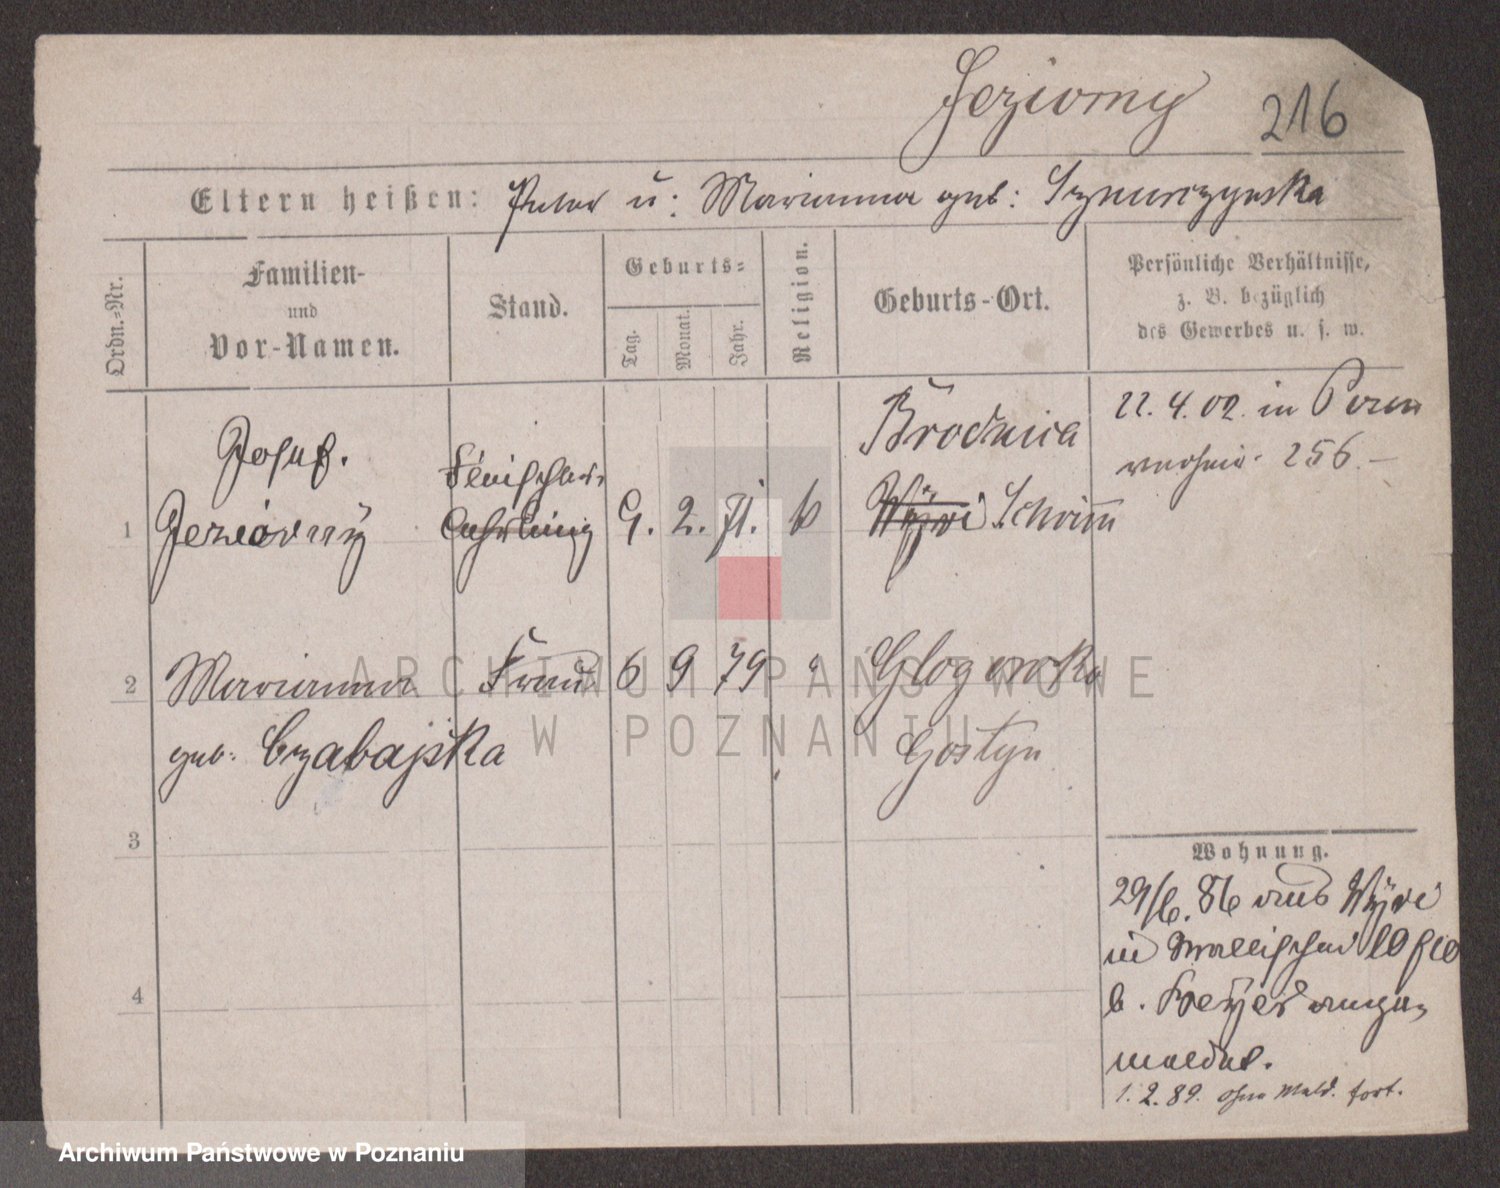 Jeziorny
216
Eltern heißen: Peter u: Marianna geb: Szymczynska
Ordn.-Nr.
Familien-
und
Vor-Namen.
Stand.
Geburts-
Tag.
Monat.
Jahr.
Religion.
Geburts-Ort.
Persönliche Verhältnisse,
z. B. bezüglich
des Gewerbes u. s. w.
1
Josef.
Jeziorny
Fleischer-
Lehrling
9. 2. 71.
k
Brodnica
Wyri Schrimm
22. 4. 02. in Posen
verheir. 256.
2
Marianna
geb. Czabajska
Frau
6 9 79
"
Glogowko
Gostyn
3
4
Wohnung.
29/6. 86 aus Wyri
in Wallischei
b. Beyer ange-
meldet.
1. 2. 89. ohne Meld. fort.
ARCHIWUM PAŃSTWOWE
W POZNANIU
Archiwum Państwowe w Poznaniu